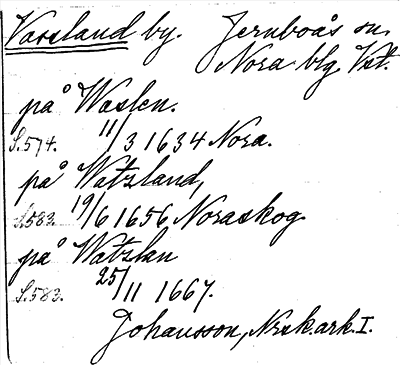 Vasseland by. Jernboås sn.
Nora blg Vst.
på Waslen.
S. 574. 11/3 1634 Nora.
på Watzland,
S. 582. 19/6 1656 Noraskog
på Watzlan
S. 583. 25/11 1667.
Johansson, Norsk. ark. I.